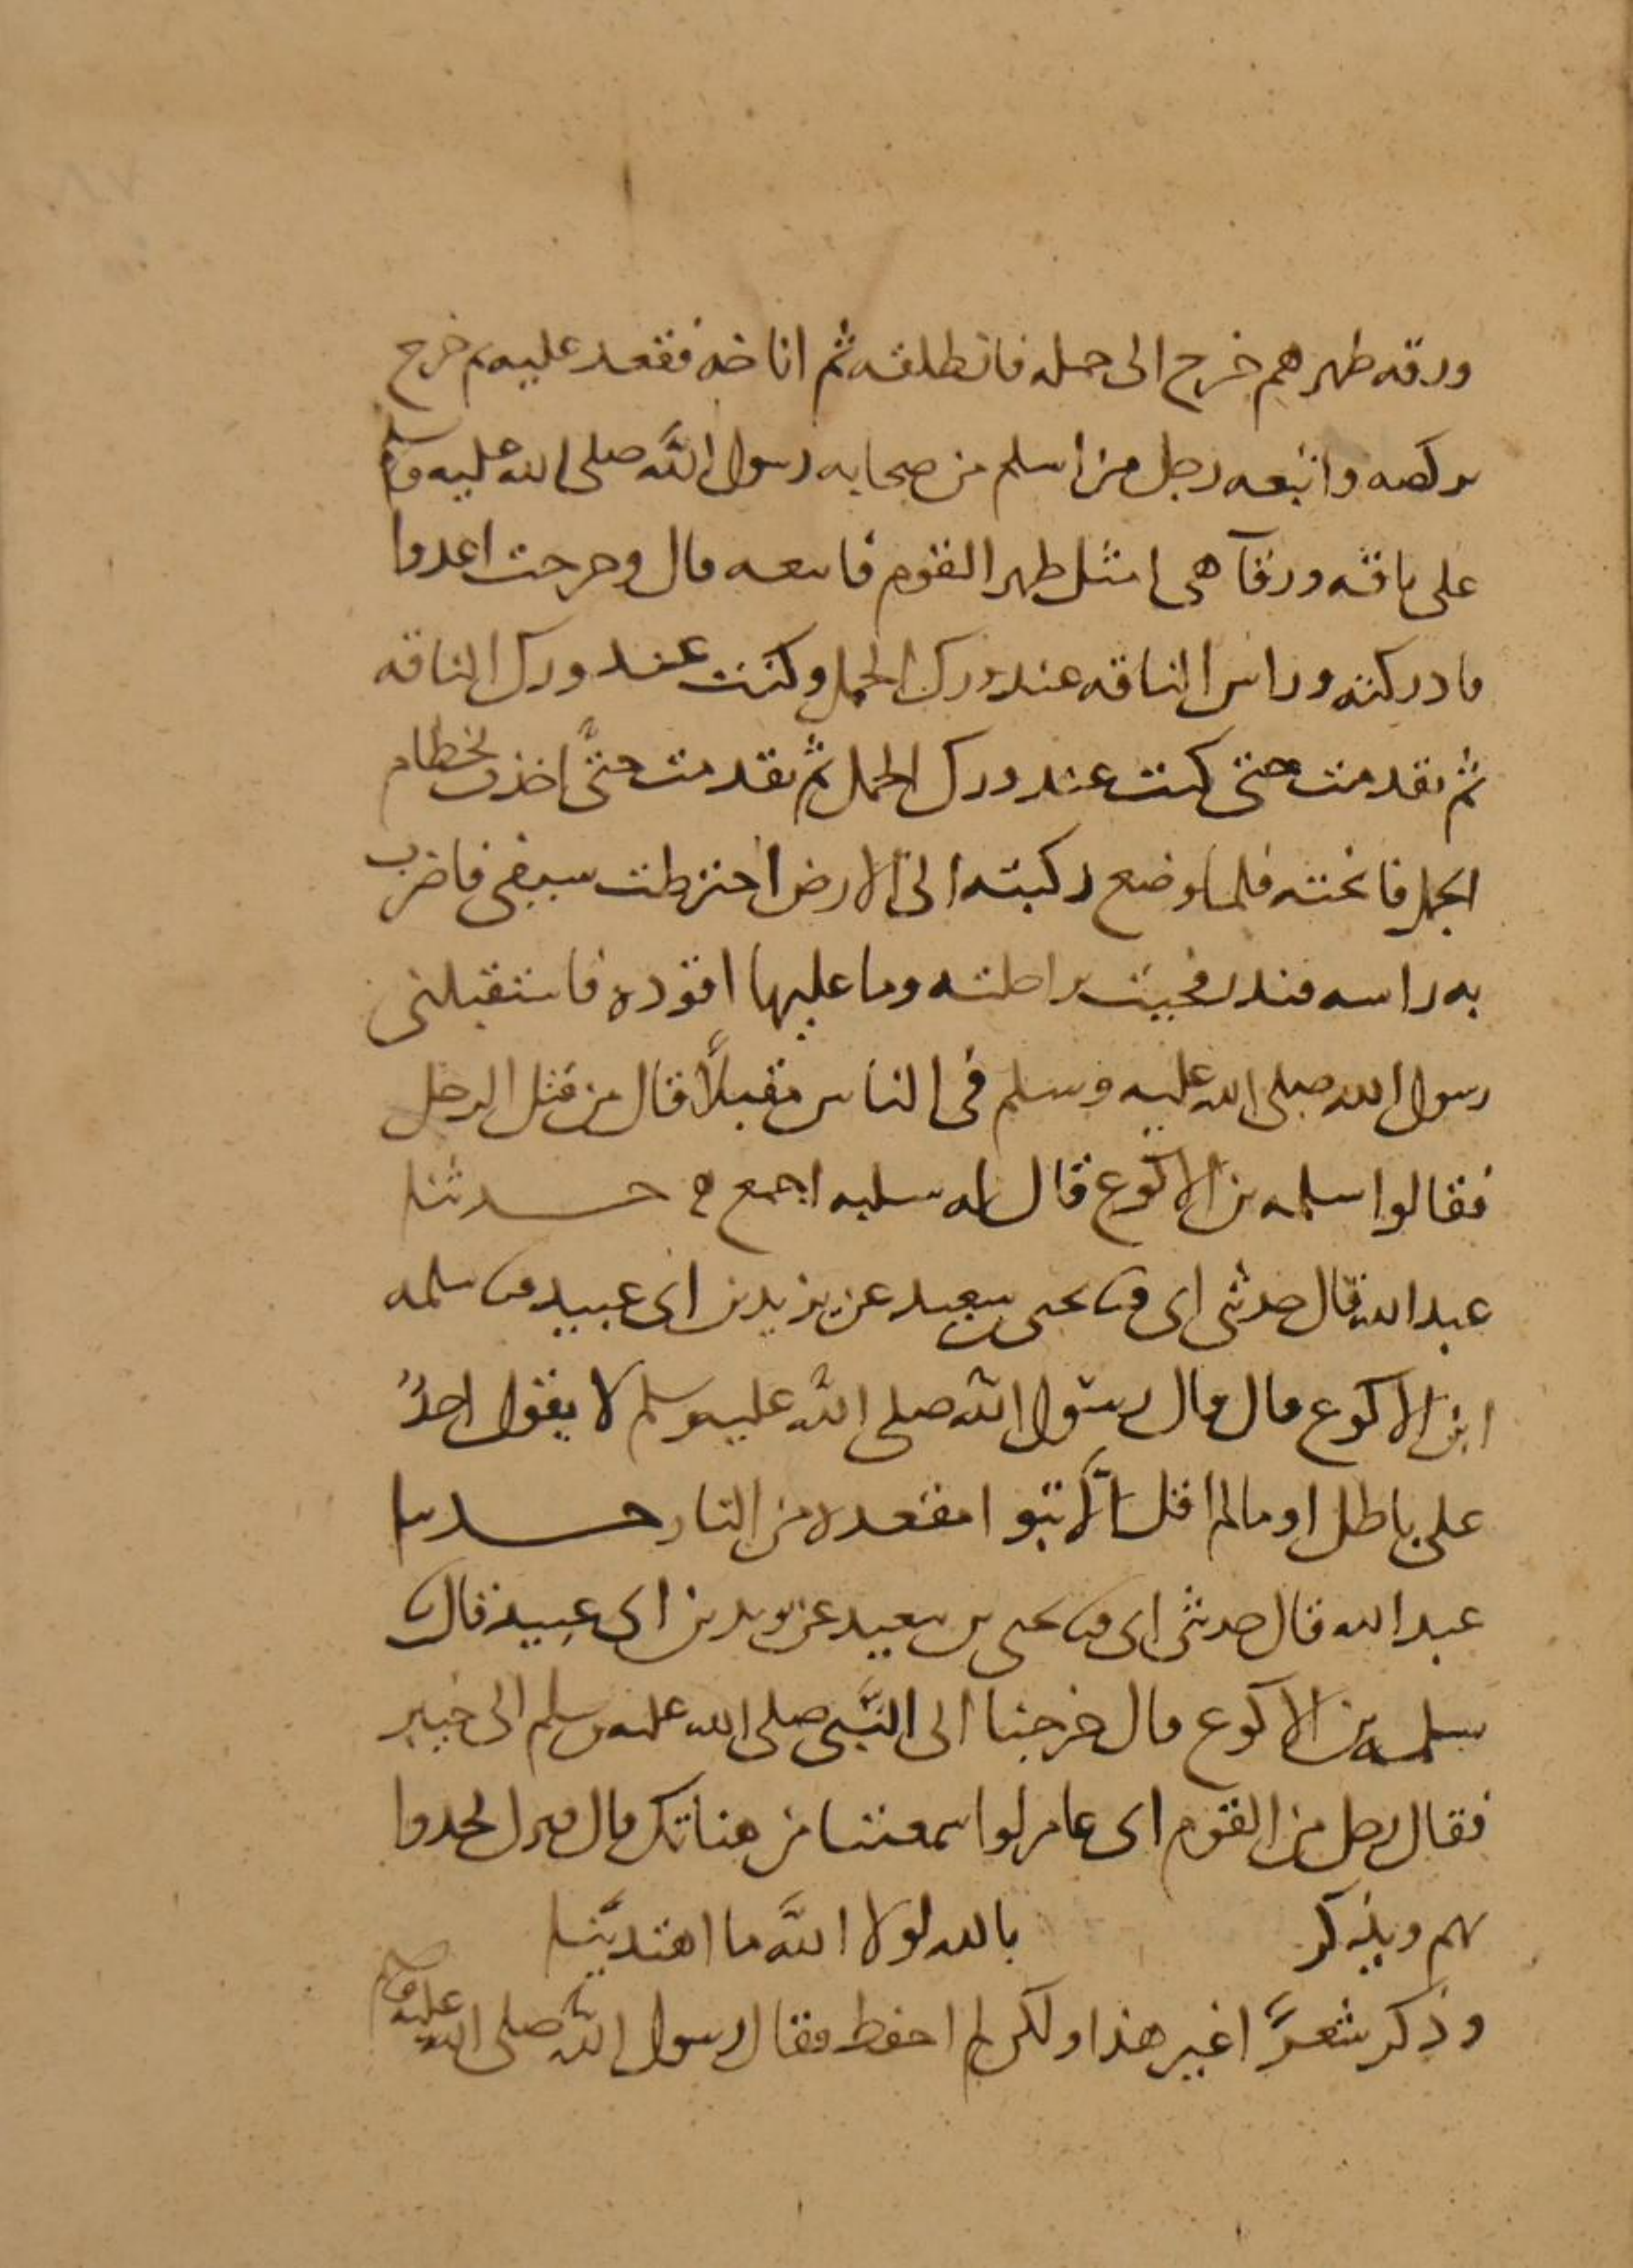 ورقه ظهرهم خرج الى جمله فانطلقه ثم اناخه فقعد عليه ثم خرج
يركضه واتبعه رجل من اسلم من صحابه رسول الله صلى الله عليه وسلم
على ناقه ورقآ هى امثل ظهر القوم فاتبعه قال وخرجت اعدوا
فادركته وراس الناقه عند ورك الجمل وكنت عند ورك الناقه
ثم تقدمت حتى كنت عند ورك الجمل ثم تقدمت حتى اخذت بخطام
الجمل فانخته فلما وضع ركبته الى الارض اخترطت سيفى فاضرب
به راسه فندر فجيت براحلته وما عليها اقوده فاستقبلنى
رسول الله صلى الله عليه وسلم فى الناس مقبلاً قال من قتل الرجل
فقالوا سلمه بن الاكوع قال له سلبه اجمع ه حدثنا
عبد الله قال حدثنى ابى قثنا يحيى بن سعيد عن يزيد بن ابى عبيد قثنا سلمه
ابن الاكوع قال قال رسول الله صلى الله عليه وسلم لا يقول احدٌ
على باطل او ما لم اقل الّا تبوا مقعده من النار حدثنا
عبد الله قال حدثنى ابى قثنا يحيى بن سعيد عن يزيد بن ابى عبيد قال
سلمه بن الاكوع قال خرجنا الى النّبى صلى الله عليه وسلم الى خيبر
فقال رجل من القوم اى عامر لو اسمعتنا من هناتك قال فنزل يحدوا
بهم ويذكر بالله لولا الله ما اهتدينا
وذكر شعرًا غير هذا ولكن لم احفظ فقال رسول الله صلى الله عليه وسلم